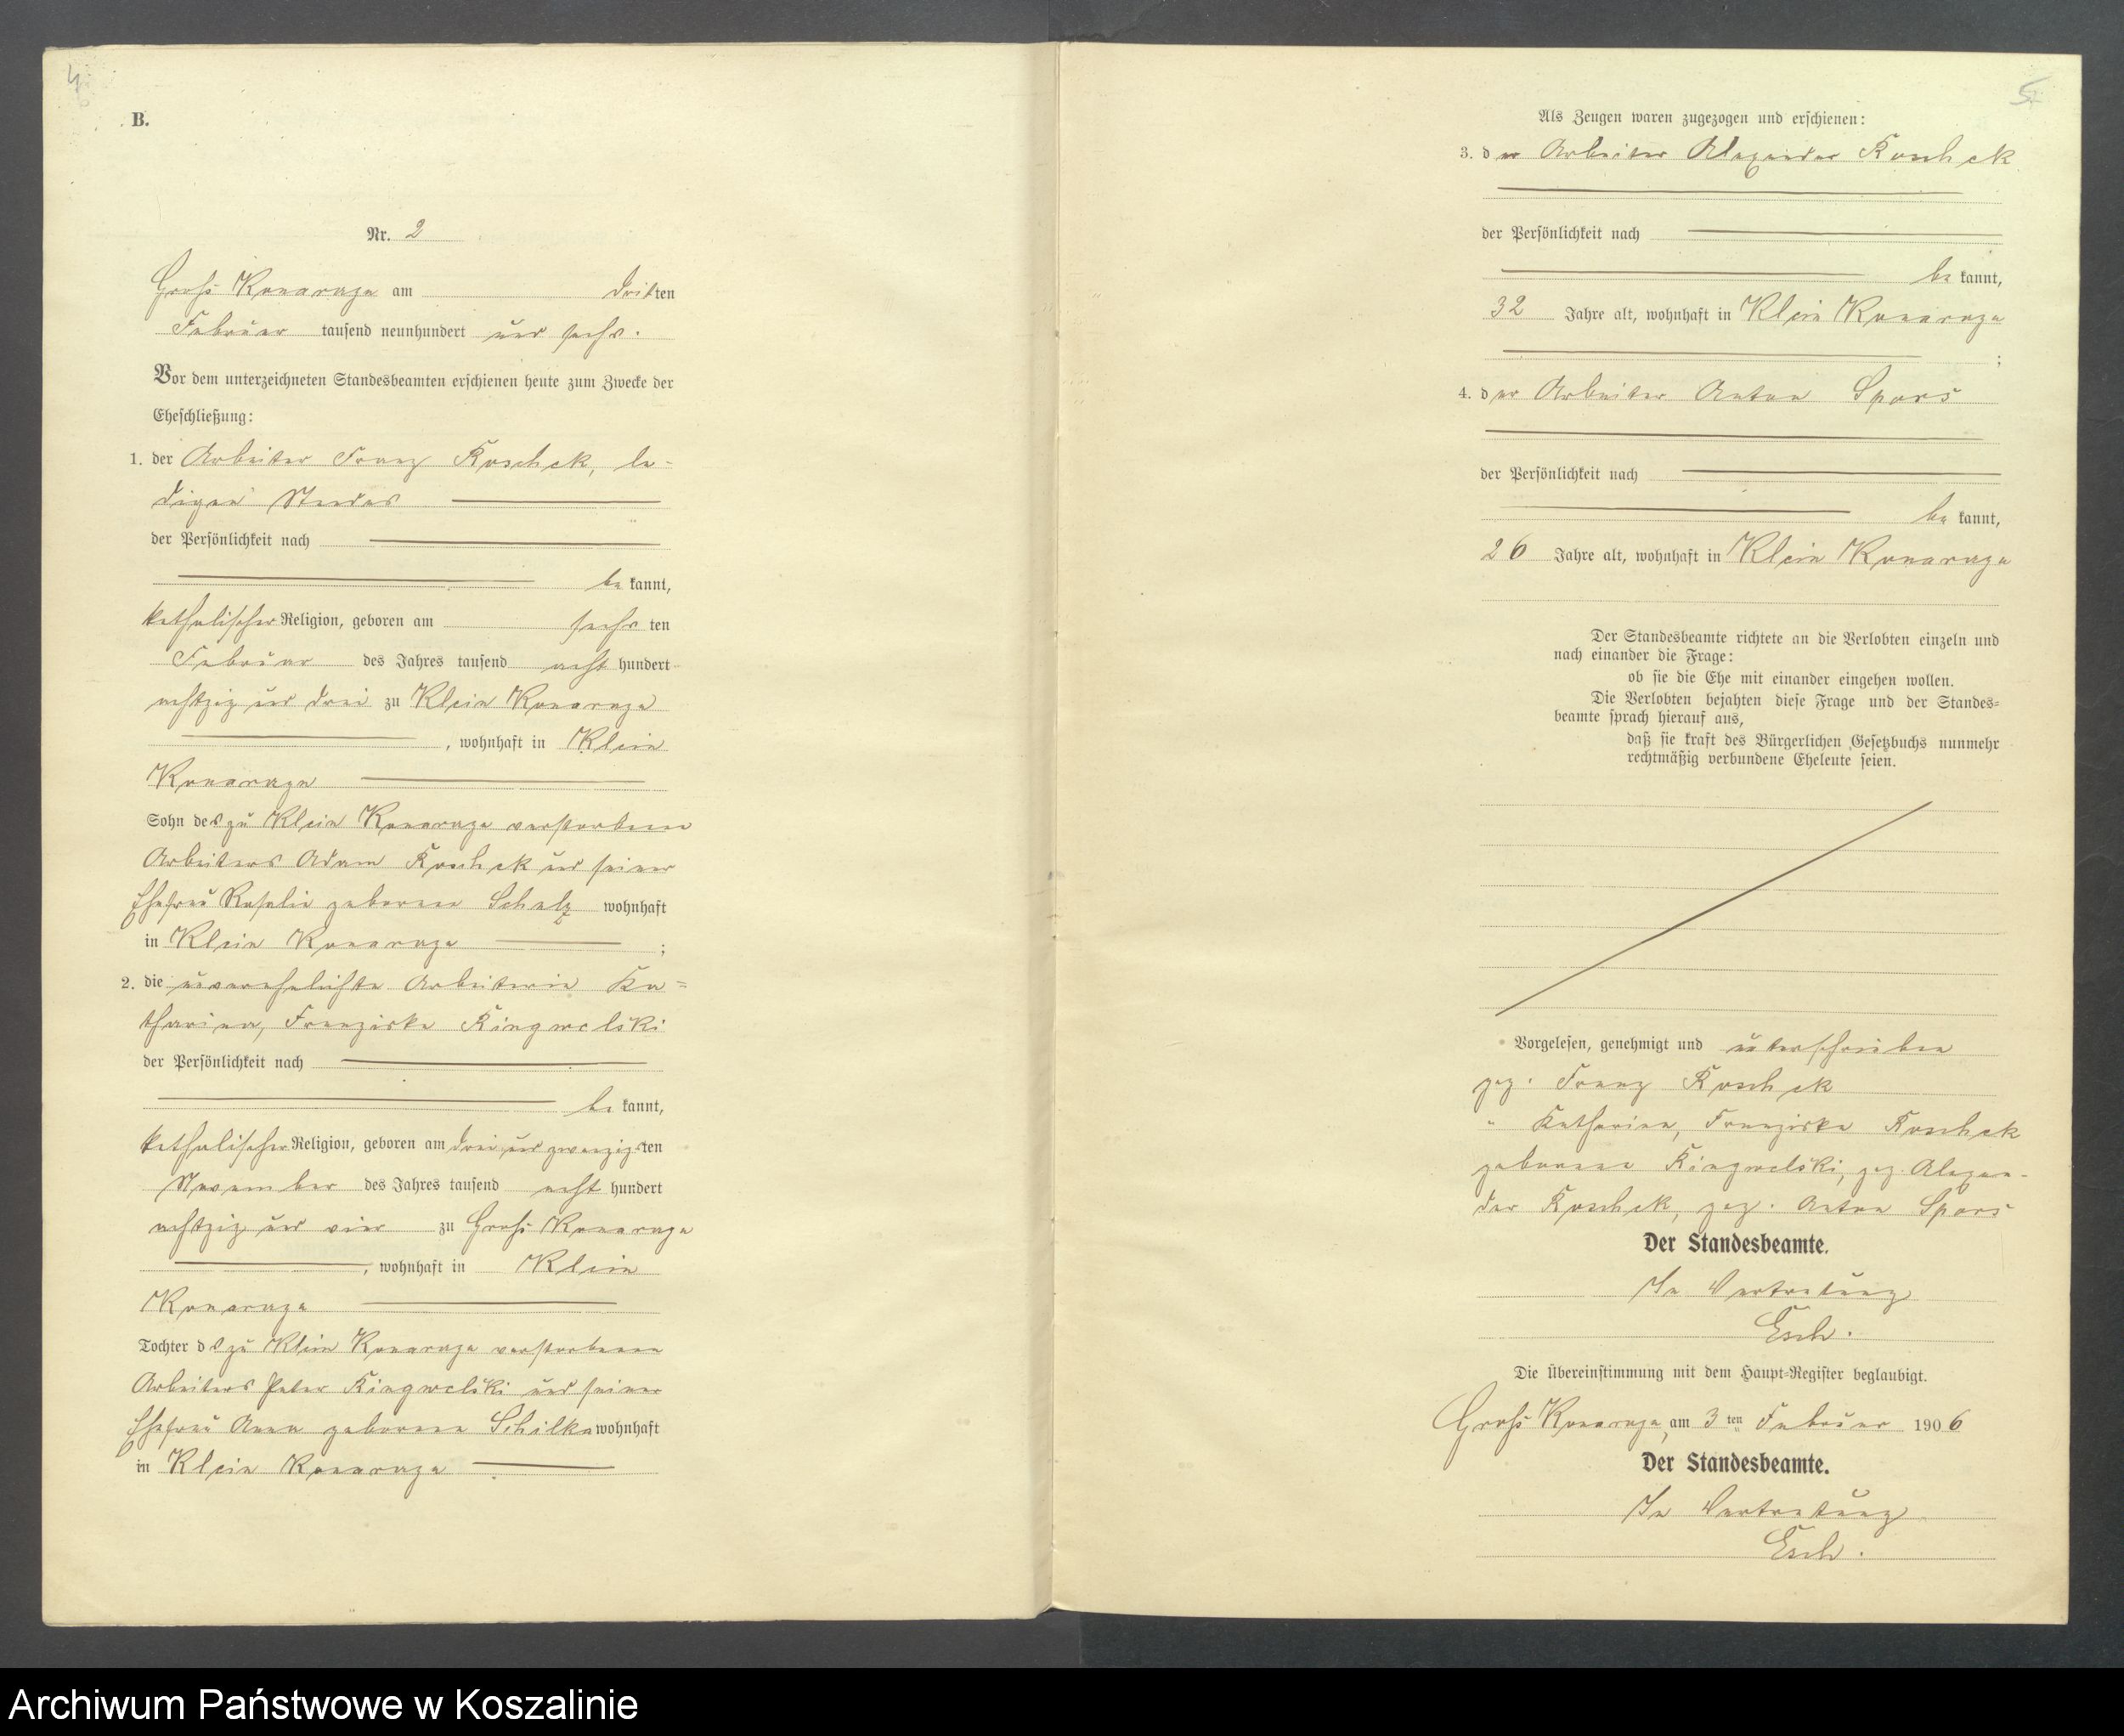 4
B.
Nr. 2
Groß Konarczyn am dritten
Februar tausend neunhundert und sechs.
Vor dem unterzeichneten Standesbeamten erschienen heute zum Zwecke der
Eheschließung:
1. der Arbeiter Franz Koschek, le-
digen Standes
der Persönlichkeit nach
be kannt,
katholischer Religion, geboren am sechs ten
Februar des Jahres tausend acht hundert
achtzig und drei zu Klein
, wohnhaft in Klein
Sohn des zu Klein verstorbenen
Arbeiters Adam Koschek und seiner
Ehefrau Rosalie geborene Schulz wohnhaft
in Klein ;
2. die unverehelichte Arbeiterin Ka=
tharina, Franziska Kingwelski
der Persönlichkeit nach
be kannt,
katholischer Religion, geboren am drei und zwanzigsten
November des Jahres tausend acht hundert
achtzig und vier zu Groß
, wohnhaft in Klein
Tochter des zu Klein verstorbenen
Arbeiters Peter Kingwelski und seiner
Ehefrau Anna geborene Schilka wohnhaft
in Klein
5
Als Zeugen waren zugezogen und erschienen:
3. der Arbeiter Alexander Koschek
der Persönlichkeit nach
be kannt,
32 Jahre alt, wohnhaft in Klein
;
4. der Arbeiter Anton Spors
der Persönlichkeit nach
be kannt,
26 Jahre alt, wohnhaft in Klein
Der Standesbeamte richtete an die Verlobten einzeln und
nach einander die Frage:
ob sie die Ehe mit einander eingehen wollen.
Die Verlobten bejahten diese Frage und der Standes=
beamte sprach hierauf aus,
daß sie kraft des Bürgerlichen Gesetzbuchs nunmehr
rechtmäßig verbundene Eheleute seien.
Vorgelesen, genehmigt und unterschrieben
gez. Franz Koschek
" Katharina, Franziska Koschek
geborene Kingwelski, gez. Alexan-
der Koschek, gez. Anton Spors
Der Standesbeamte.
In Vertretung
Esch.
Die Übereinstimmung mit dem Haupt=Register beglaubigt.
Groß am 3ten Februar 1906
Der Standesbeamte.
In Vertretung
Esch.
Archiwum Państwowe w Koszalinie